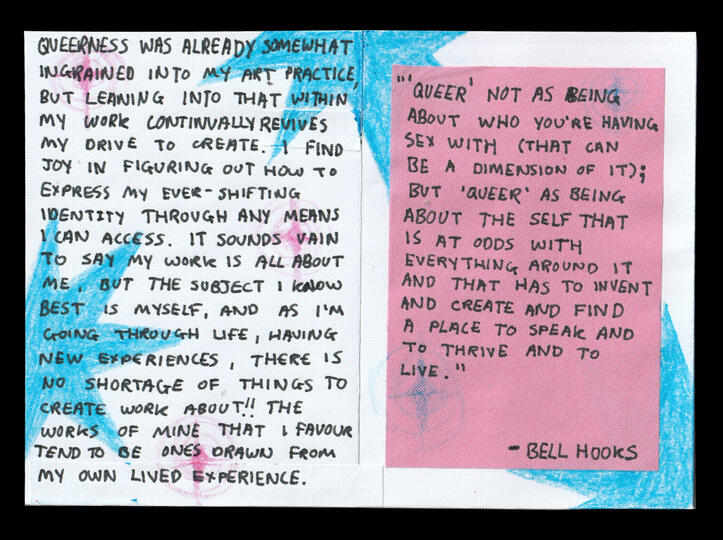 QUEERNESS WAS ALREADY SOMEWHAT
INGRAINED INTO MY ART PRACTICE,
BUT LEANING INTO THAT WITHIN
MY WORK CONTINUALLY REVIVES
MY DRIVE TO CREATE. I FIND
JOY IN FIGURING OUT HOW TO
EXPRESS MY EVER-SHIFTING
IDENTITY THROUGH ANY MEANS
I CAN ACCESS. IT SOUNDS VAIN
TO SAY MY WORK IS ALL ABOUT
ME, BUT THE SUBJECT I KNOW
BEST IS MYSELF, AND AS I'M
GOING THROUGH LIFE, HAVING
NEW EXPERIENCES, THERE IS
NO SHORTAGE OF THINGS TO
CREATE WORK ABOUT!! THE
WORKS OF MINE THAT I FAVOUR
TEND TO BE ONES DRAWN FROM
MY OWN LIVED EXPERIENCE.
"'QUEER' NOT AS BEING
ABOUT WHO YOU'RE HAVING
SEX WITH (THAT CAN
BE A DIMENSION OF IT);
BUT 'QUEER' AS BEING
ABOUT THE SELF THAT
IS AT ODDS WITH
EVERYTHING AROUND IT
AND THAT HAS TO INVENT
AND CREATE AND FIND
A PLACE TO SPEAK AND
TO THRIVE AND TO
LIVE."
- BELL HOOKS